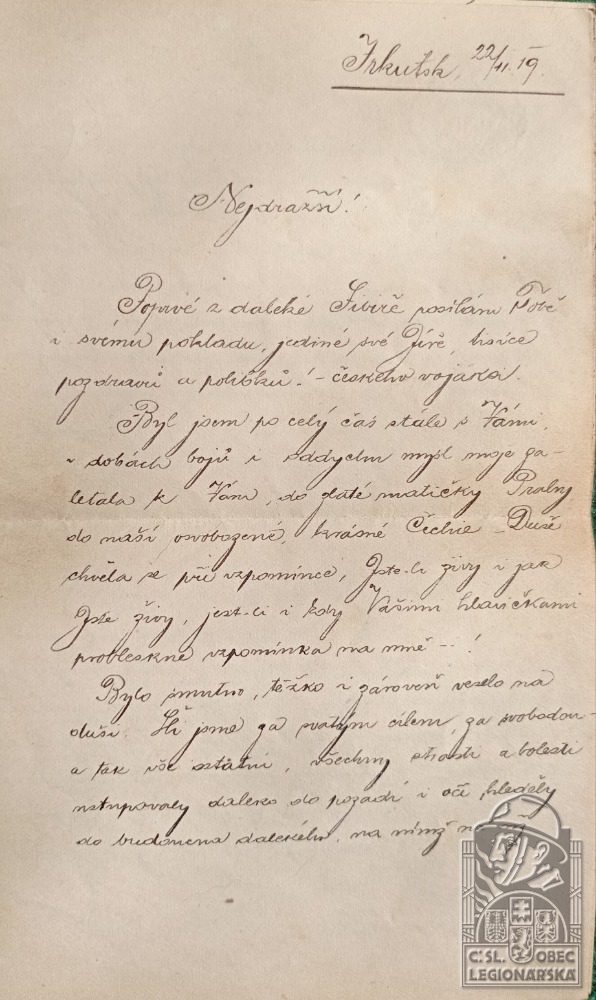 Irkutsk, 22/II. 19.
Nejdražší!
Poprvé z daleké Sibiře posílám Tobě
i svému pokladu, jediné své Jiře, tisíce
pozdravů a polibků! – českého vojáka.
Byl jsem po celý čas stále s Vámi,
v dobách bojů i oddychu mysl moje za-
letala k Vám, do zlaté matičky Prahy
do naší osvobozené, krásné Čechie – Duše
chvěla se při vzpomínce, Jste-li živy i jak
Jste živy, jest-li i kdy Vašimi hlavičkami
probleskne vzpomínka na mně – – !
Bylo smutno, těžko i zároveň veselo na
duši. Šli jsme za svatým cílem, za svobodou –
a tak vše ostatní, všechny strasti a bolesti
ustupovaly daleko do pozadí i oči hleděly
do budoucna dalekého, na nímž
Č.SL. OBEC
LEGIONÁŘSKÁ